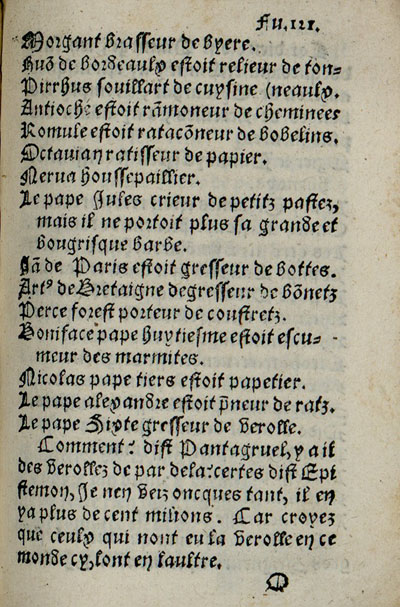 Fu.111.
Morgant brasseur de byere.
Huõ de bordeaulx estoit relieur de ton=
Pirrhus souillart de cuysine (neaulx.
Antioche estoit rãmoneur de cheminees
Romule estoit rataconneur de bobelins.
Octavian ratisseur de papier.
Nerva houssepaillier.
Le pape Jules crieur de petitz pastez,
mais il ne portoit plus sa grande et
bougrisque barbe.
Jã de Paris estoit gresseur de bottes.
Art⁹ de Bretaigne degresseur de bõnetz
Perce forest porteur de coustretz.
Boniface pape huytiesme estoit escu-
meur des marmites.
Nicolas pape tiers estoit papetier.
Le pape alexandre estoit p̃neur de ratz.
Le pape Sixte gresseur de verolle.
Comment? dist Pantagruel, y a il
des verollez de par dela? certes dist Epi
stemon, Je nen veiz oncques tant, il en
ya plus de cent milions. Car croyez
que ceulx qui nont eu la verolle en ce
monde cy, lont en laultre.